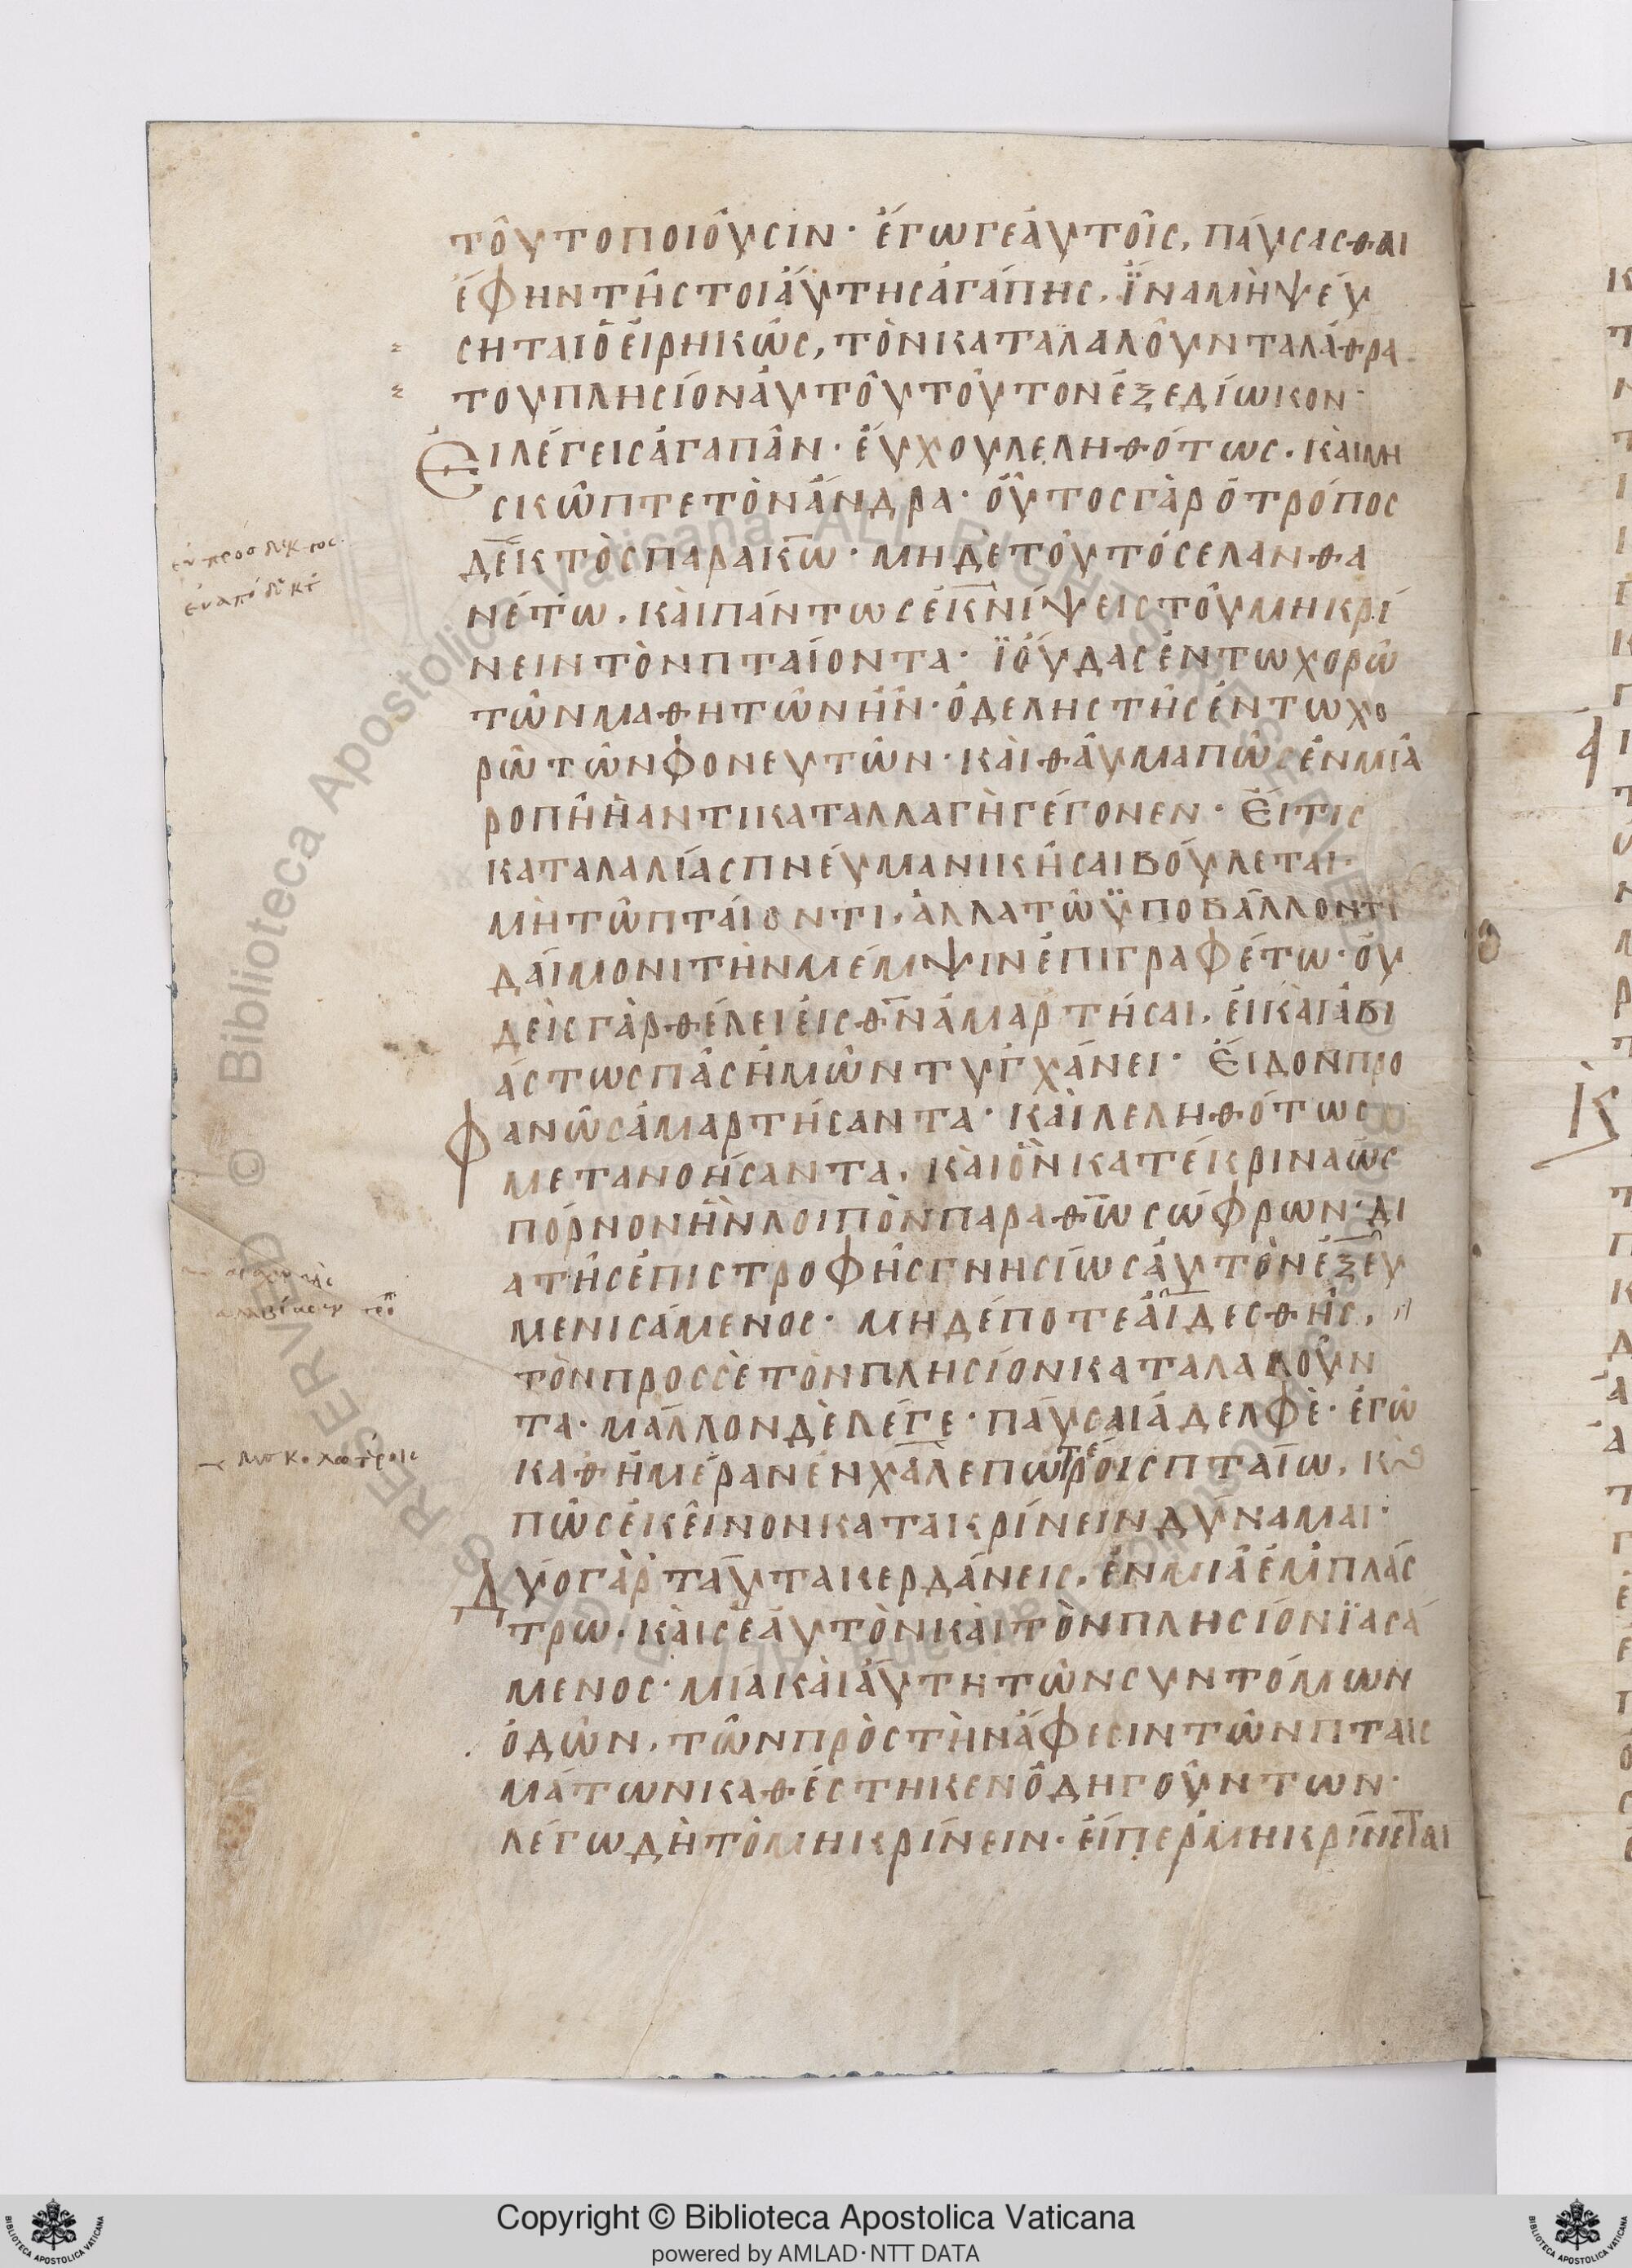 τοῦτο ποιοῦσιν· ἔγωγε αὐτοῖς, παύσασθαι
ἔφην τῆς τοιαύτης ἀγάπης, ἵνα μὴ ψεύ
σηται ὁ εἰρηκὼς, τὸν καταλαλοῦντα λάθρα
του πλησίον αὐτοῦ τοῦτον ἐξεδίωκον·
Εἰ λέγεις ἀγαπᾶν· εὔχου λεληθότως. καὶ μὴ
σκῶπτε τὸν ἄνδρα· οὗτος γὰρ ὁ τρόπος
δεκτὸς παρα κω· μηδὲ τοῦτό σε λανθα
νέτω, καὶ πάντως ἐκνίψεις τοῦ μὴ κρί
νειν τὸν πταίοντα· Ἰούδας ἐν τω χορῶ
τῶν μαθητῶν ἦν· ὁ δε ληστὴς ἐν τω χο
ρῶ τῶν φονευτῶν· καὶ θαῦμα πῶς ἐν μιᾶ
ροπῆ ἡ αντικαταλλαγὴ γέγονεν· Εἴ τις
καταλαλίας πνεῦμα νικῆσαι βούλεται·
μὴ τῶ πταίοντι, ἀλλα τῶ ὑποβάλλοντι
δαίμονι τὴν μέμψιν ἐπιγραφέτω· οὐ
δεὶς γὰρ θέλει εἰς θν ἁμαρτῆσαι, εἰ καὶ ἀβι
άστως πᾶς ἡμῶν τυγχάνει· Εἶδον προ
φανῶς ἁμαρτήσαντα· καὶ λεληθότως
μετανοήσαντα, καὶ ὃν κατέκρινα ὡς
πόρνον ἦν λοιπὸν παρα θω σώφρων· δι
α τῆς ἐπιστροφῆς γνησίως αὐτὸν ἐξευ
μενισάμενος· μηδέποτε αἰδεσθῆς,
τὸν προς σὲ τὸν πλησίον καταλαλοῦν
τα· μᾶλλον δὲ λέγε· παῦσαι ἀδελφὲ· ἐγὼ
καθημέραν ἐν χαλεπωτέροις πταίω, κ
πῶς ἐκεῖνον κατακρίνειν δύναμαι·
Δύο γὰρ ταῦτα κερδάνεις, ἐν μιᾶ ἐμπλάσ
τρω, καὶ σεαυτὸν καὶ τὸν πλησίον ἰασά
μενος· μία καὶ αὕτη τῶν συντόμων
ὁδῶν, τῶν πρὸς τὴν ἄφεσιν τῶν πταισ
μάτων καθέστηκεν ὁδηγούντων·
λέγω δὴ τὸ μὴ κρίνειν· εἴπερ μὴ κρίνεται
εὐπρόσδεκτος
Copyright © Biblioteca Apostolica Vaticana
powered by AMLAD·NTT DATA